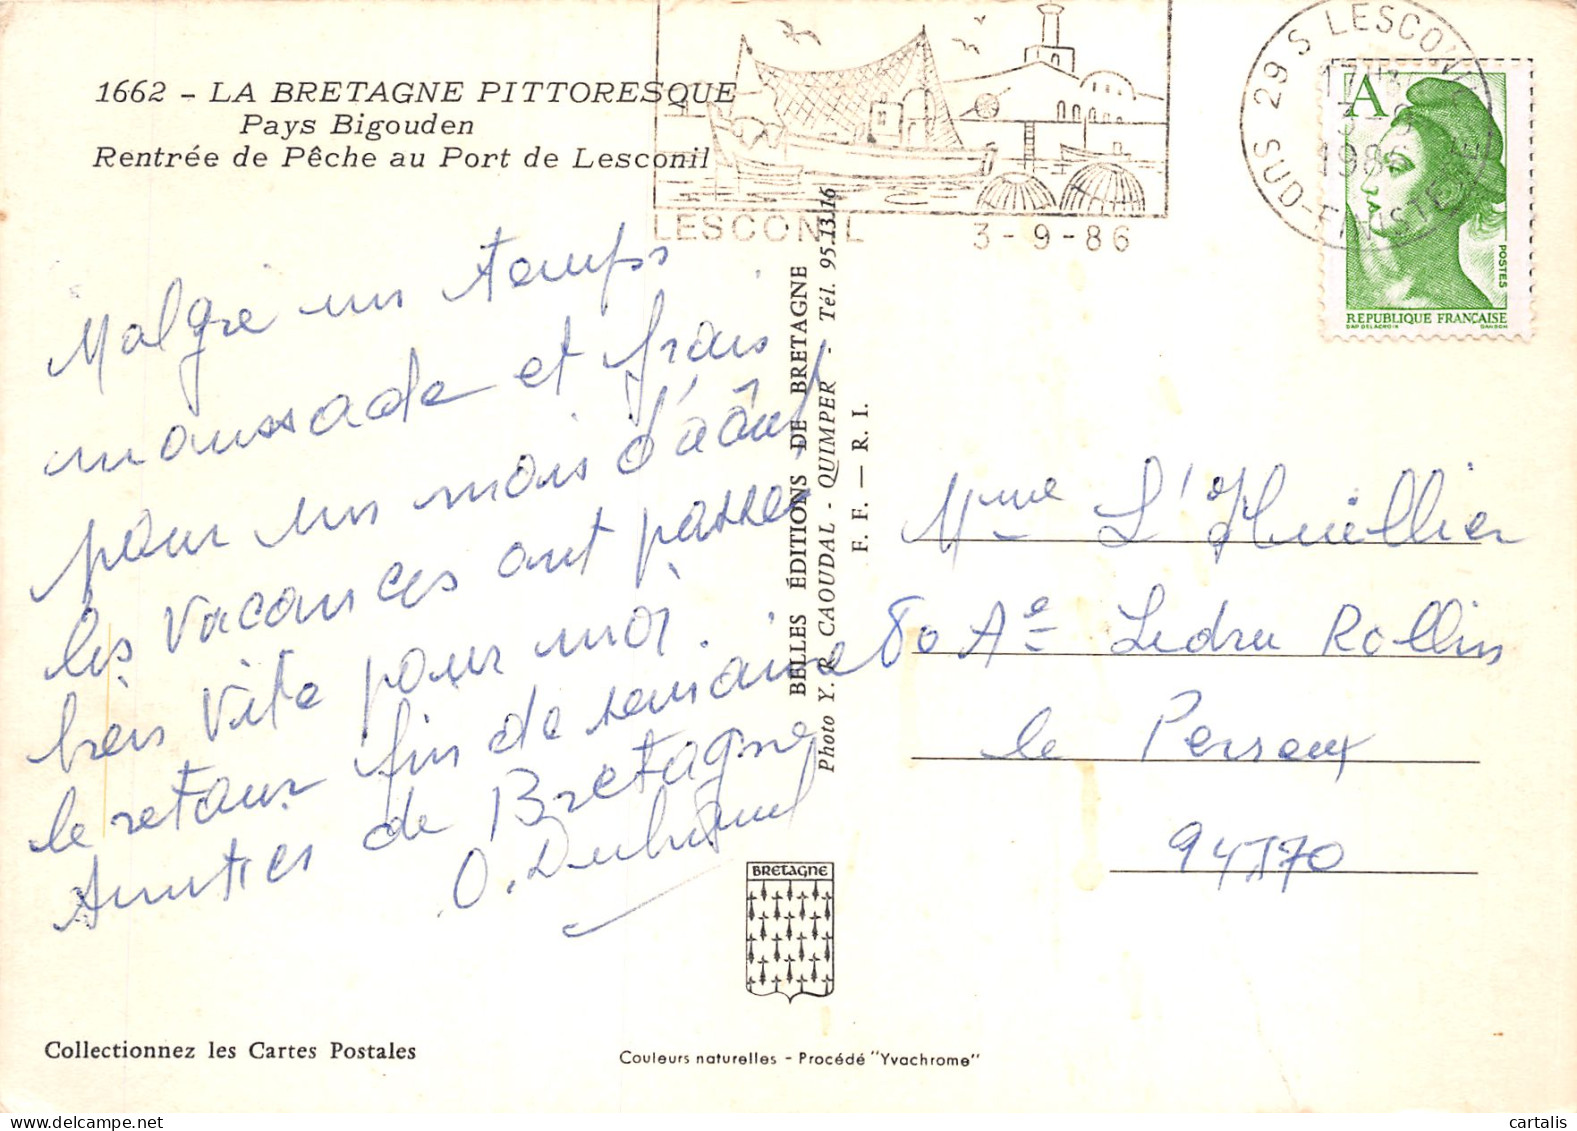 1662 - LA BRETAGNE PITTORESQUE
Pays Bigouden
Rentrée de Pêche au Port de Lesconil
LESCONIL 3-9-86
29 S LESCONIL
1986
SUD-FINISTERE
A
POSTES
REPUBLIQUE FRANÇAISE
DAP DELACROIX GANDON
Malgré un temps
maussade et frais
pour un mois d'août
les vacances ont passées
bien vite pour moi.
le retour fin de semaine
Amitiés de Bretagne
O. Duhamel
BELLES ÉDITIONS DE BRETAGNE
Photo Y. R. CAOUDAL - QUIMPER - Tél. 95.13.16
F. F. — R. I.
Mme L'Huillier
80 Ae Ledru Rollin
le Perreux
94170
BRETAGNE
Collectionnez les Cartes Postales
Couleurs naturelles - Procédé "Yvachrome"
cartalis